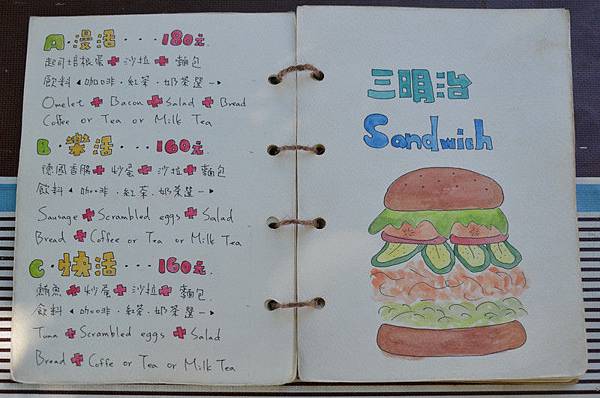 A·漫活···180元
起司培根蛋+沙拉+麵包
飲料◀咖啡·紅茶·奶茶選一▶
Omelet + Bacon + Salad + Bread
Coffee or Tea or Milk Tea
B·樂活···160元
德國香腸+炒蛋+沙拉+麵包
飲料◀咖啡·紅茶·奶茶選一▶
Sausage + Scrambled eggs + Salad
Bread + Coffee or Tea or Milk Tea
C·快活···160元
鮪魚+炒蛋+沙拉+麵包
飲料◀咖啡·紅茶·奶茶選一▶
Tuna + Scrambled eggs + Salad
Bread + Coffe or Tea or Milk Tea
三明治
Sandwich